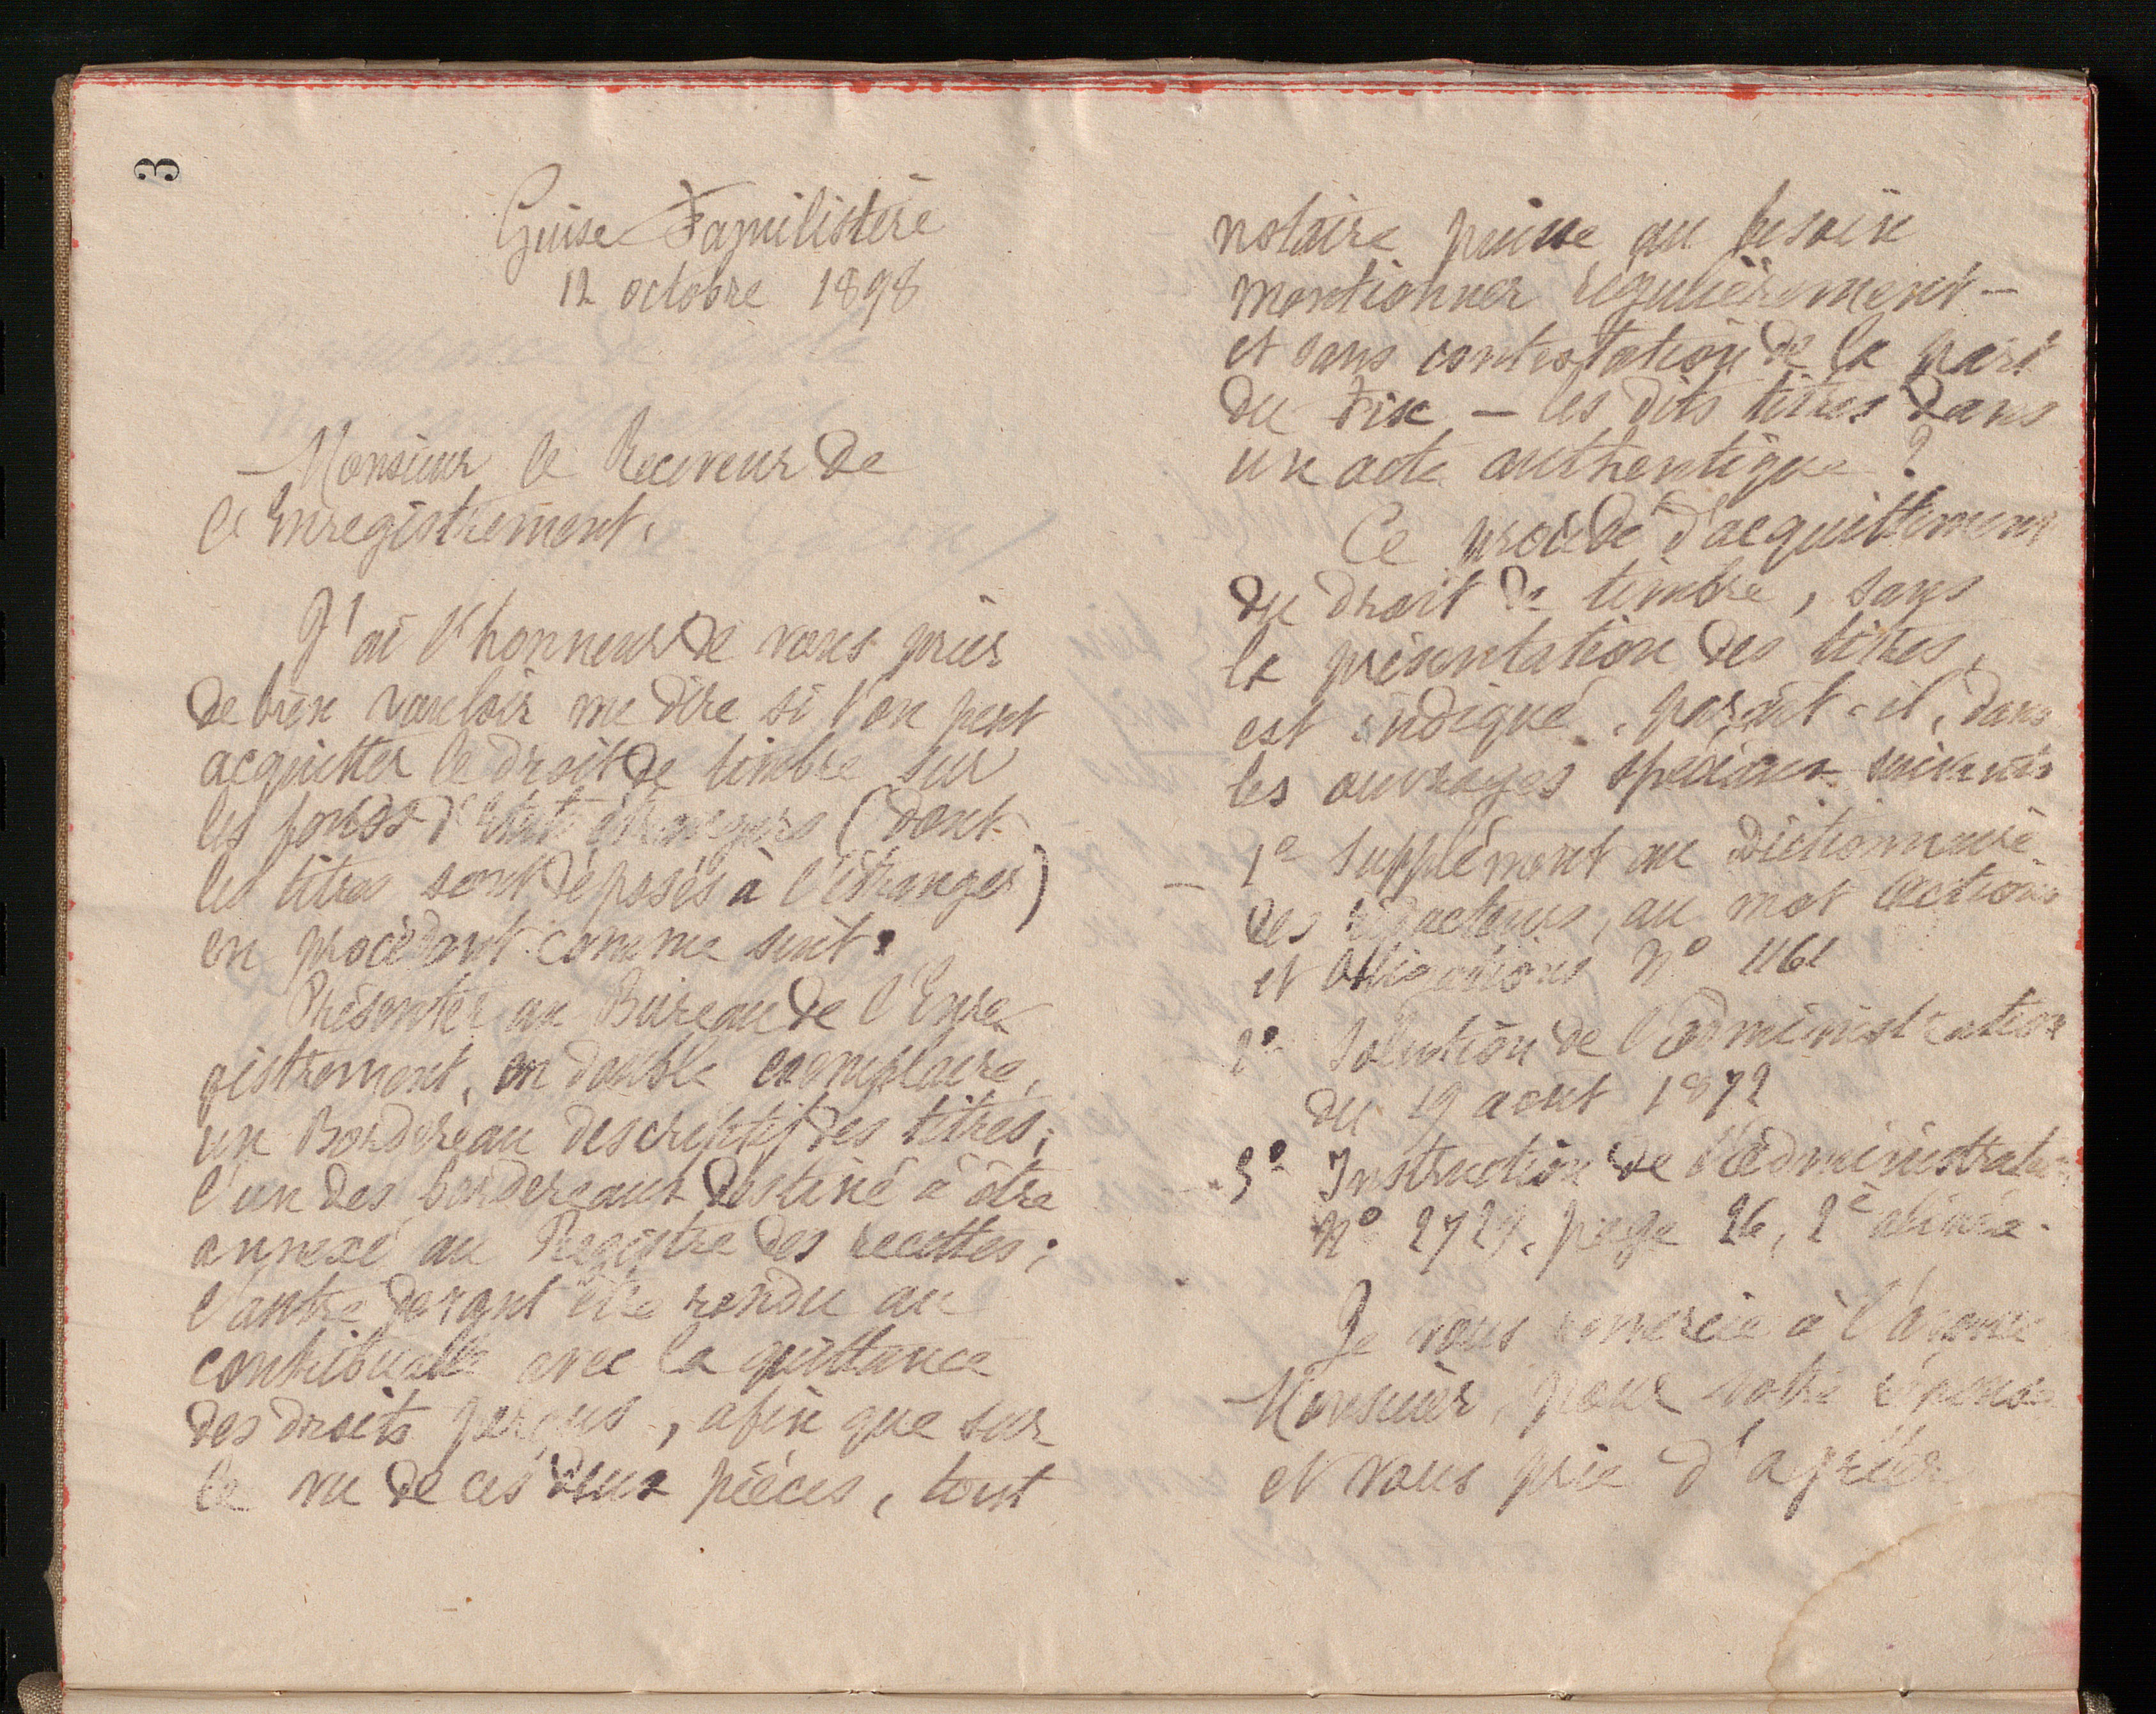 3
Guise Familistère
12 octobre 1898
Monsieur le Receveur de
l'Enregistrement.
J'ai l'honneur de vous prier
de bien vouloir me dire si l'on peut
acquitter le droit de timbre sur
les fonds d'Etat étrangers (dont
les titres sont déposés à l'étranger)
en procédant comme suit :
Présenter au Bureau de l'Enre-
gistrement, en double exemplaire,
un Bordereau descriptif des titres ;
l'un des bordereaux destiné à être
annexé au Registre des recettes ;
l'autre devant être rendu au
contribuable avec la quittance
des droits perçus, afin que sur
le vu de ces deux pièces, tout
notaire puisse au besoin
mentionner régulièrement -
et sans contestation de la part
du Fisc - les dits titres dans
un acte authentique ?
Ce procédé d'acquittement
du droit de timbre, sans
la présentation des titres,
est indiqué, paraît-il, dans
les ouvrages spéciaux suivants
- 1º Supplément au Dictionnaire
des rédacteurs, au mot Actions
et Obligations Nº 1161
2º Solution de l'administration
du 19 août 1872
3º Instruction de l'administration
Nº 2729, page 26, 2e alinéa.
Je vous remercie à l'avance
Monsieur, pour votre réponse
et vous prie d'agréer